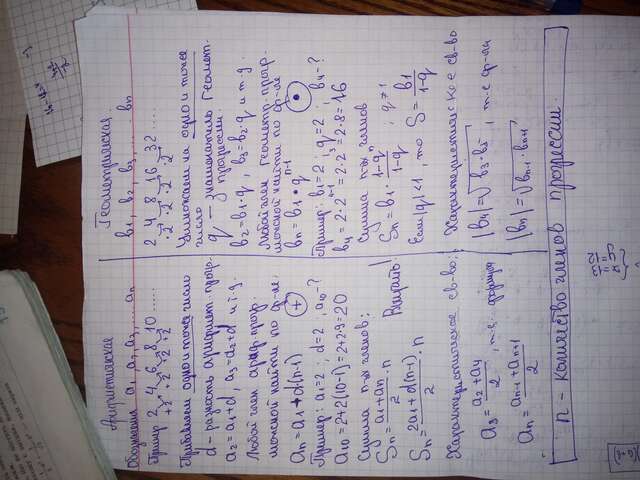 Арифметическая
Обозначения a₁, a₂, a₃, ... aₙ
Пример 2 4 6 8 10 ......
+2 +2 +2 +2
Прибавляем одно и тоже число
d - разность арифмет. прогр.
a₂=a₁+d, a₃=a₂+d и т.д.
Любой член ариф. прогр.
можно найти по ф-ле:
aₙ = a₁ + d(n-1) (+)
Пример: a₁=2; d=2, a₁₀-?
a₁₀=2+2(10-1)=2+2·9=20
Сумма n-х членов:
Sₙ = (a₁+aₙ)/2 · n
Sₙ = (2a₁+d(n-1))/2 · n
Характеристическое св-во:
a₃ = (a₂+a₄)/2, т.е. формула
aₙ = (aₙ₋₁+aₙ₊₁)/2
Геометрическая
b₁, b₂, b₃, ... bₙ
2 4 8 16 32 .....
·2 ·2 ·2 ·2
Умножаем на одно и тоже
число
q - знаменатель геомет.
прогрессии
b₂=b₁·q, b₃=b₂·q и т.д.
Любой член геометр. прогр.
можно найти по ф-ле
bₙ = b₁·qⁿ⁻¹ (·)
Пример: b₁=2; q=2; b₄-?
b₄=2·2⁴⁻¹=2·2³=2·8=16
Сумма n-х членов
Sₙ = b₁· (1-qⁿ)/(1-q), q≠1
Если |q|<1, то S = b₁/(1-q)
Характеристическое св-во
|b₄| = √(b₃·b₅), т.е. ф-ла
|bₙ| = √(bₙ₋₁·bₙ₊₁)
n - количество членов прогрессии